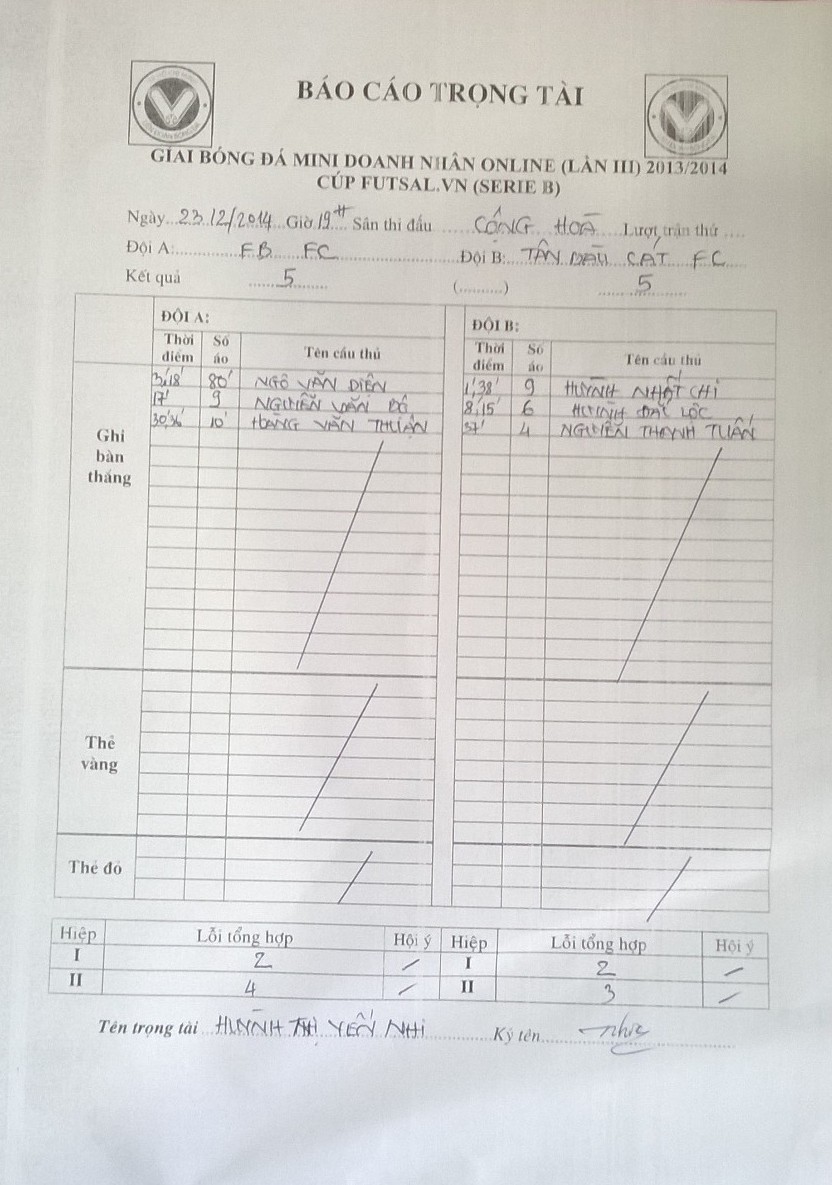 BÁO CÁO TRỌNG TÀI
GIẢI BÓNG ĐÁ MINI DOANH NHÂN ONLINE (LẦN III) 2013/2014
CÚP FUTSAL.VN (SERIE B)
Ngày...23/12/2014 Giờ 19H Sân thi đấu ...... CỘNG HOÀ ...... Lượt trận thứ ....
Đội A:............ FB FC ............ Đội B: TÂN DẦU CÁT FC
Kết quả ...... 5 ...... (..........) ...... 5 ......
ĐỘI A: ĐỘI B:
Thời điểm Số áo Tên cầu thủ Thời điểm Số áo Tên cầu thủ
Ghi bàn thắng
3,18' 80' NGÔ VĂN DIỄN 1',38' 9 HUỲNH NHẬT CHÍ
17' 9 NGUYỄN VĂN ĐÔ 8',15' 6 HUỲNH ĐẠI LỘC
30,36' 10' HOÀNG VĂN THUẬN 37' 4 NGUYỄN THANH TUẤN
Thẻ vàng
Thẻ đỏ
Hiệp Lỗi tổng hợp Hội ý Hiệp Lỗi tổng hợp Hội ý
I 2 / I 2 /
II 4 / II 3 /
Tên trọng tài ...HUỲNH THỊ YẾN NHI.......... Ký tên...... Nhi